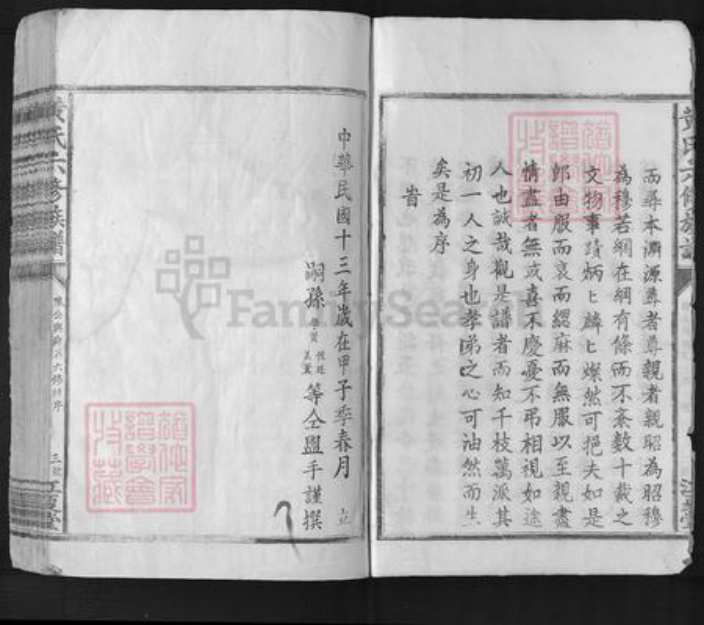 而尋本溯源尊者尊親者親昭為昭穆
為穆若網在綱有條而不紊數十載之
文物事蹟炳匕麟匕燦然可挹夫如是
郎由服而衰而緦麻而無服以至親盡
情盡者無或喜不慶憂不弔相視如途
人也誠哉觀是譜者而知千枝萬派其
初一人之身也孝弟之心可油然而生
矣是為序
旹
中華民國十三年歲在甲子季春月 立
嗣孫 等仝盥手謹撰
黃氏六修族譜
六修族序
三號
江夏堂
FamilySea